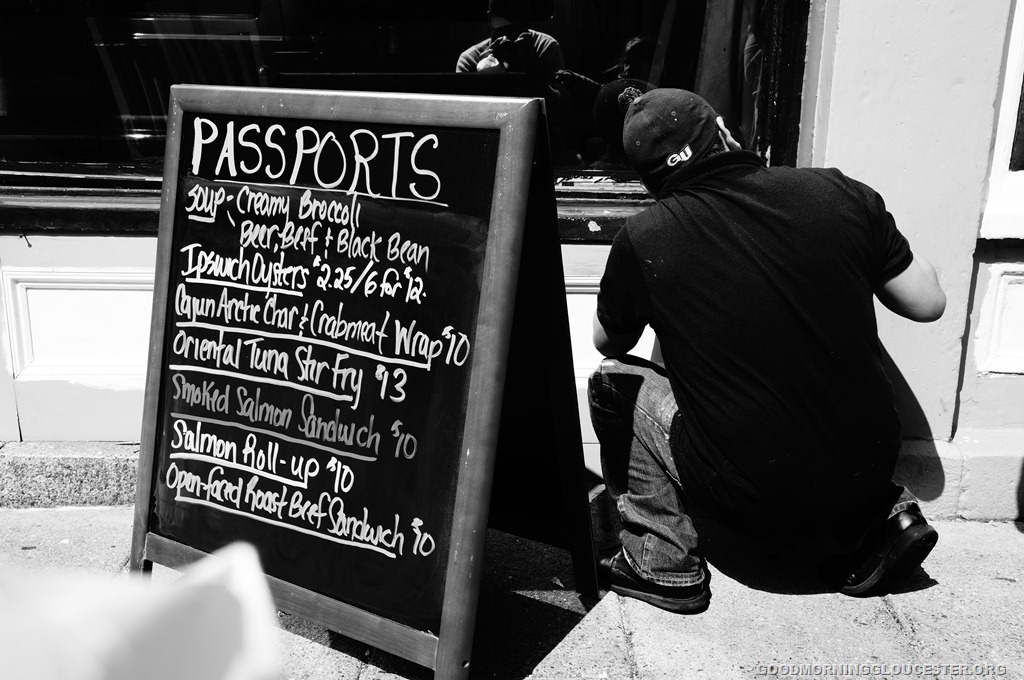 PASSPORTS
SOUP - Creamy Broccoli
Beer, Beef & Black Bean
Ipswich Oysters $2.25/6 for $12.
Cajun Arctic Char & Crabmeat Wrap $10
Oriental Tuna Stir Fry $13
Smoked Salmon Sandwich $10
Salmon Roll-up $10
Open-faced Roast Beef Sandwich $10
GU
GOODMORNINGGLOUCESTER.ORG